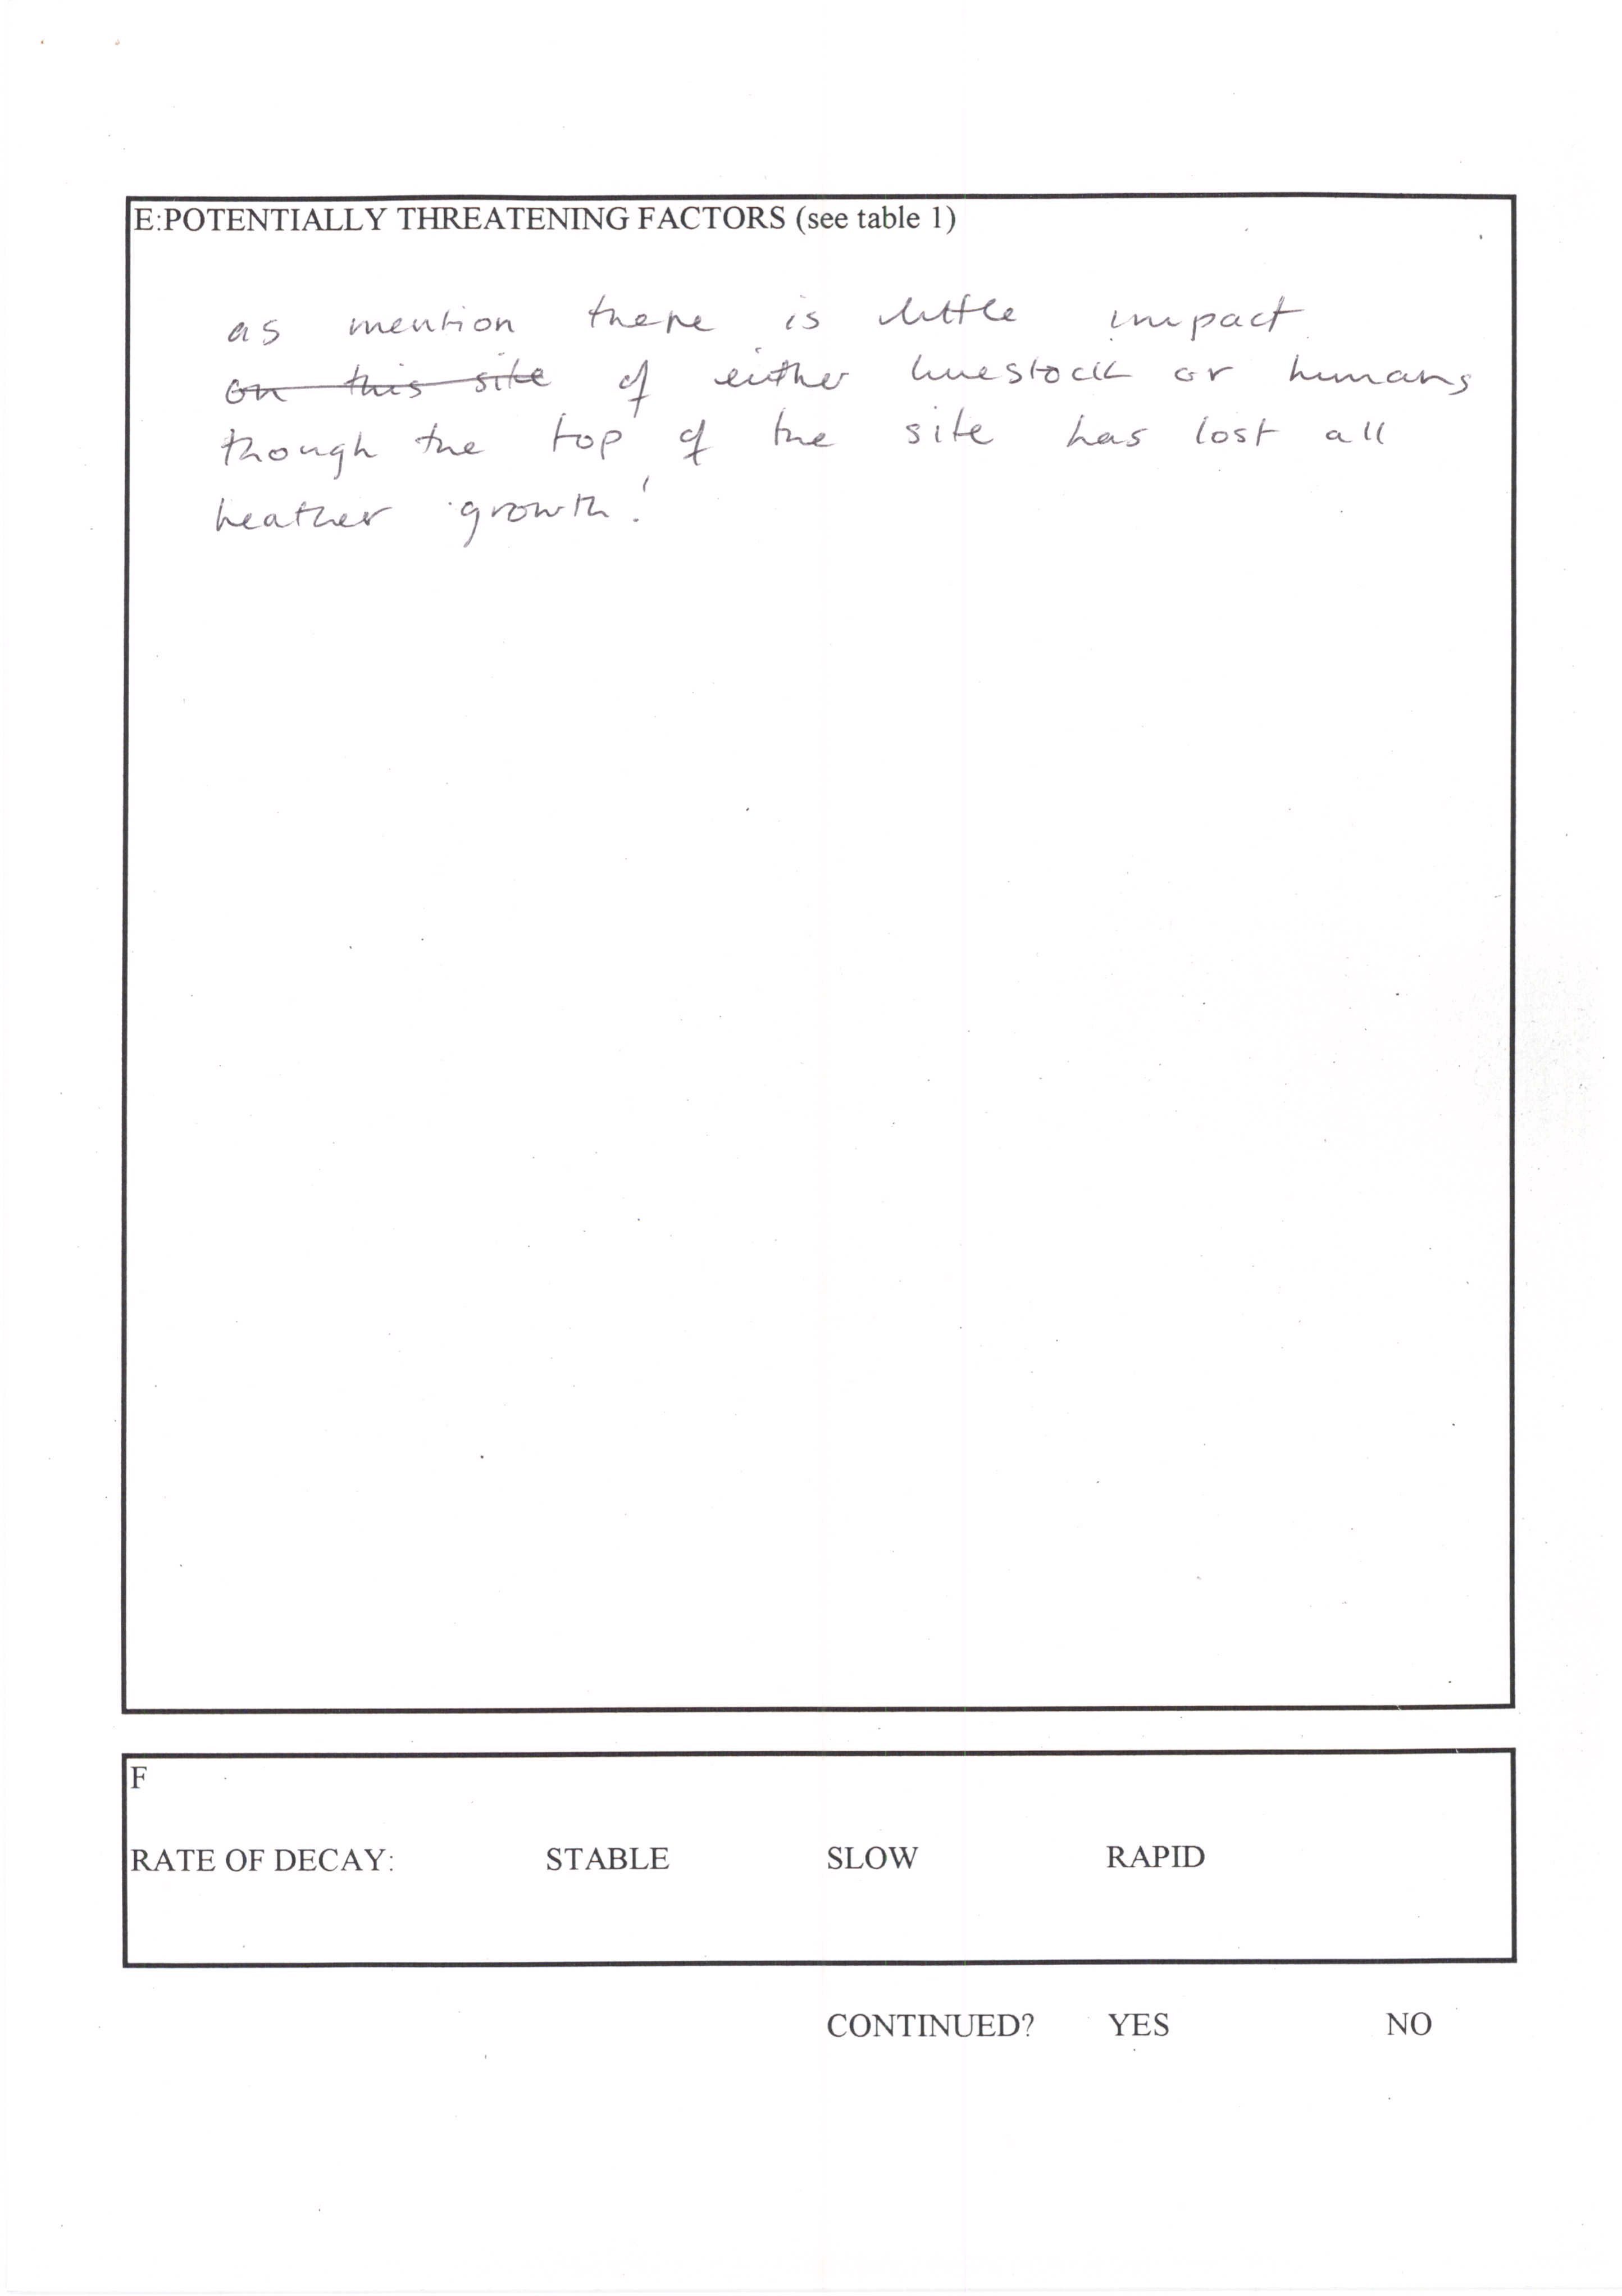 E:POTENTIALLY THREATENING FACTORS (see table 1)
as mention there is little impact
on this site of either livestock or humans
though the top of the site has lost all
heather growth!
F
RATE OF DECAY: STABLE SLOW RAPID
CONTINUED? YES NO